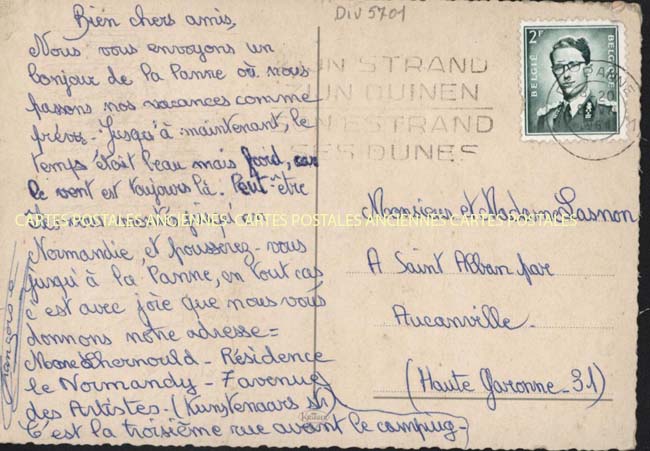 Div 5701
Bien chers amis,
Nous vous envoyons un
bonjour de La Panne où nous
passons nos vacances comme
prévu - Jusqu'à maintenant, le
temps était beau mais froid, car
le vent est toujours là. Peut-être
Normandie et pousserez-vous
jusqu'à la Panne, en tout cas
c'est avec joie que nous vous
donnons notre adresse =
Résidence
le Normandy - 7 avenue
des Artistes - (Kunstenaars str)
C'est la troisième rue avant le camping -
CARTES POSTALES ANCIENNES CARTES POSTALES ANCIENNES CARTES POSTALES
2F
BELGIË
BELGIQUE
PANNE
ZIJN STRAND
ZIJN DUINEN
SON ESTRAND
SES DUNES
Monsieur et Madame Lasnon
A Saint Alban par
Aucanville -
(Haute Garonne - 31)